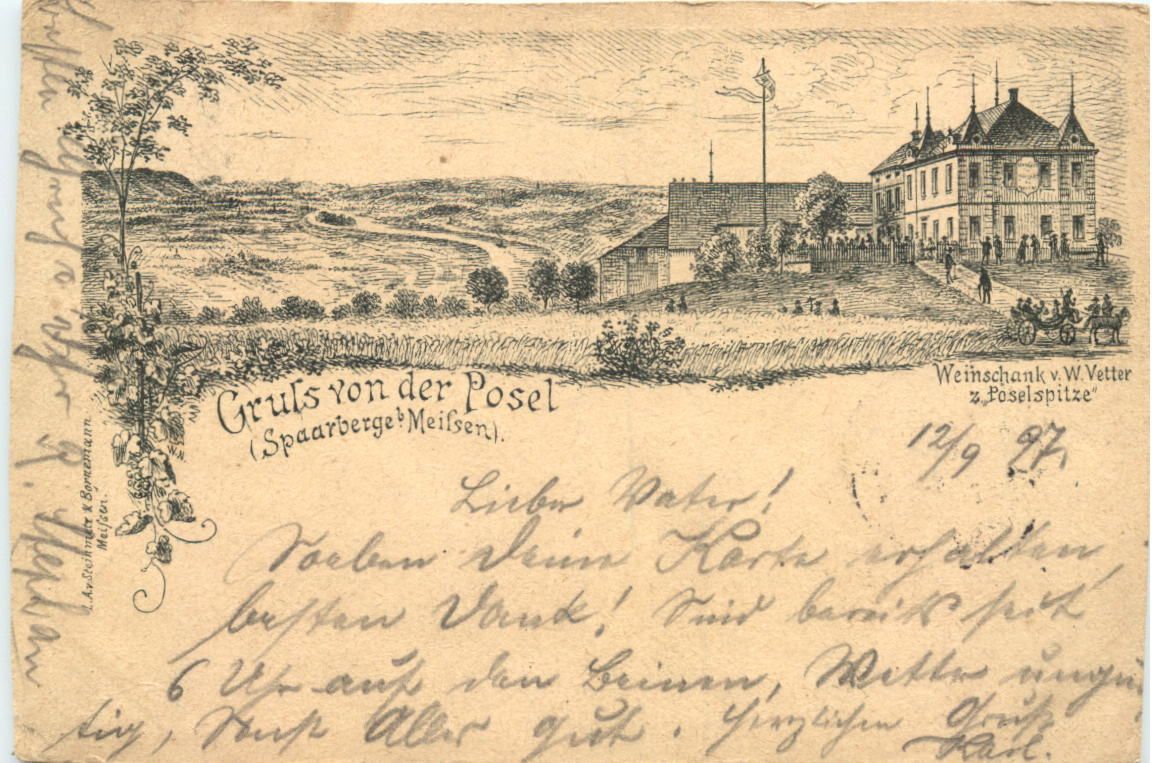 Gruſs von der Posel
(Spaarberge b Meiſsen).
Weinschank v. W. Vetter
z. „Poselspitze"
L. A. v. Stelzner & Bornemann
Meiſsen.
W.N.
12/9 97.
Lieber Vater!
Soeben Deine Karte erhalten,
besten Dank! Sind bereits seit
6 Uhr auf den Beinen, Wetter ungün
stig, sonst Alles gut. Herzlichen Gruß
Karl.